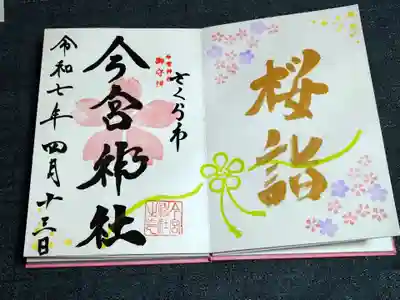 桜詣
さくら市
今宮神社
令和七年四月十三日